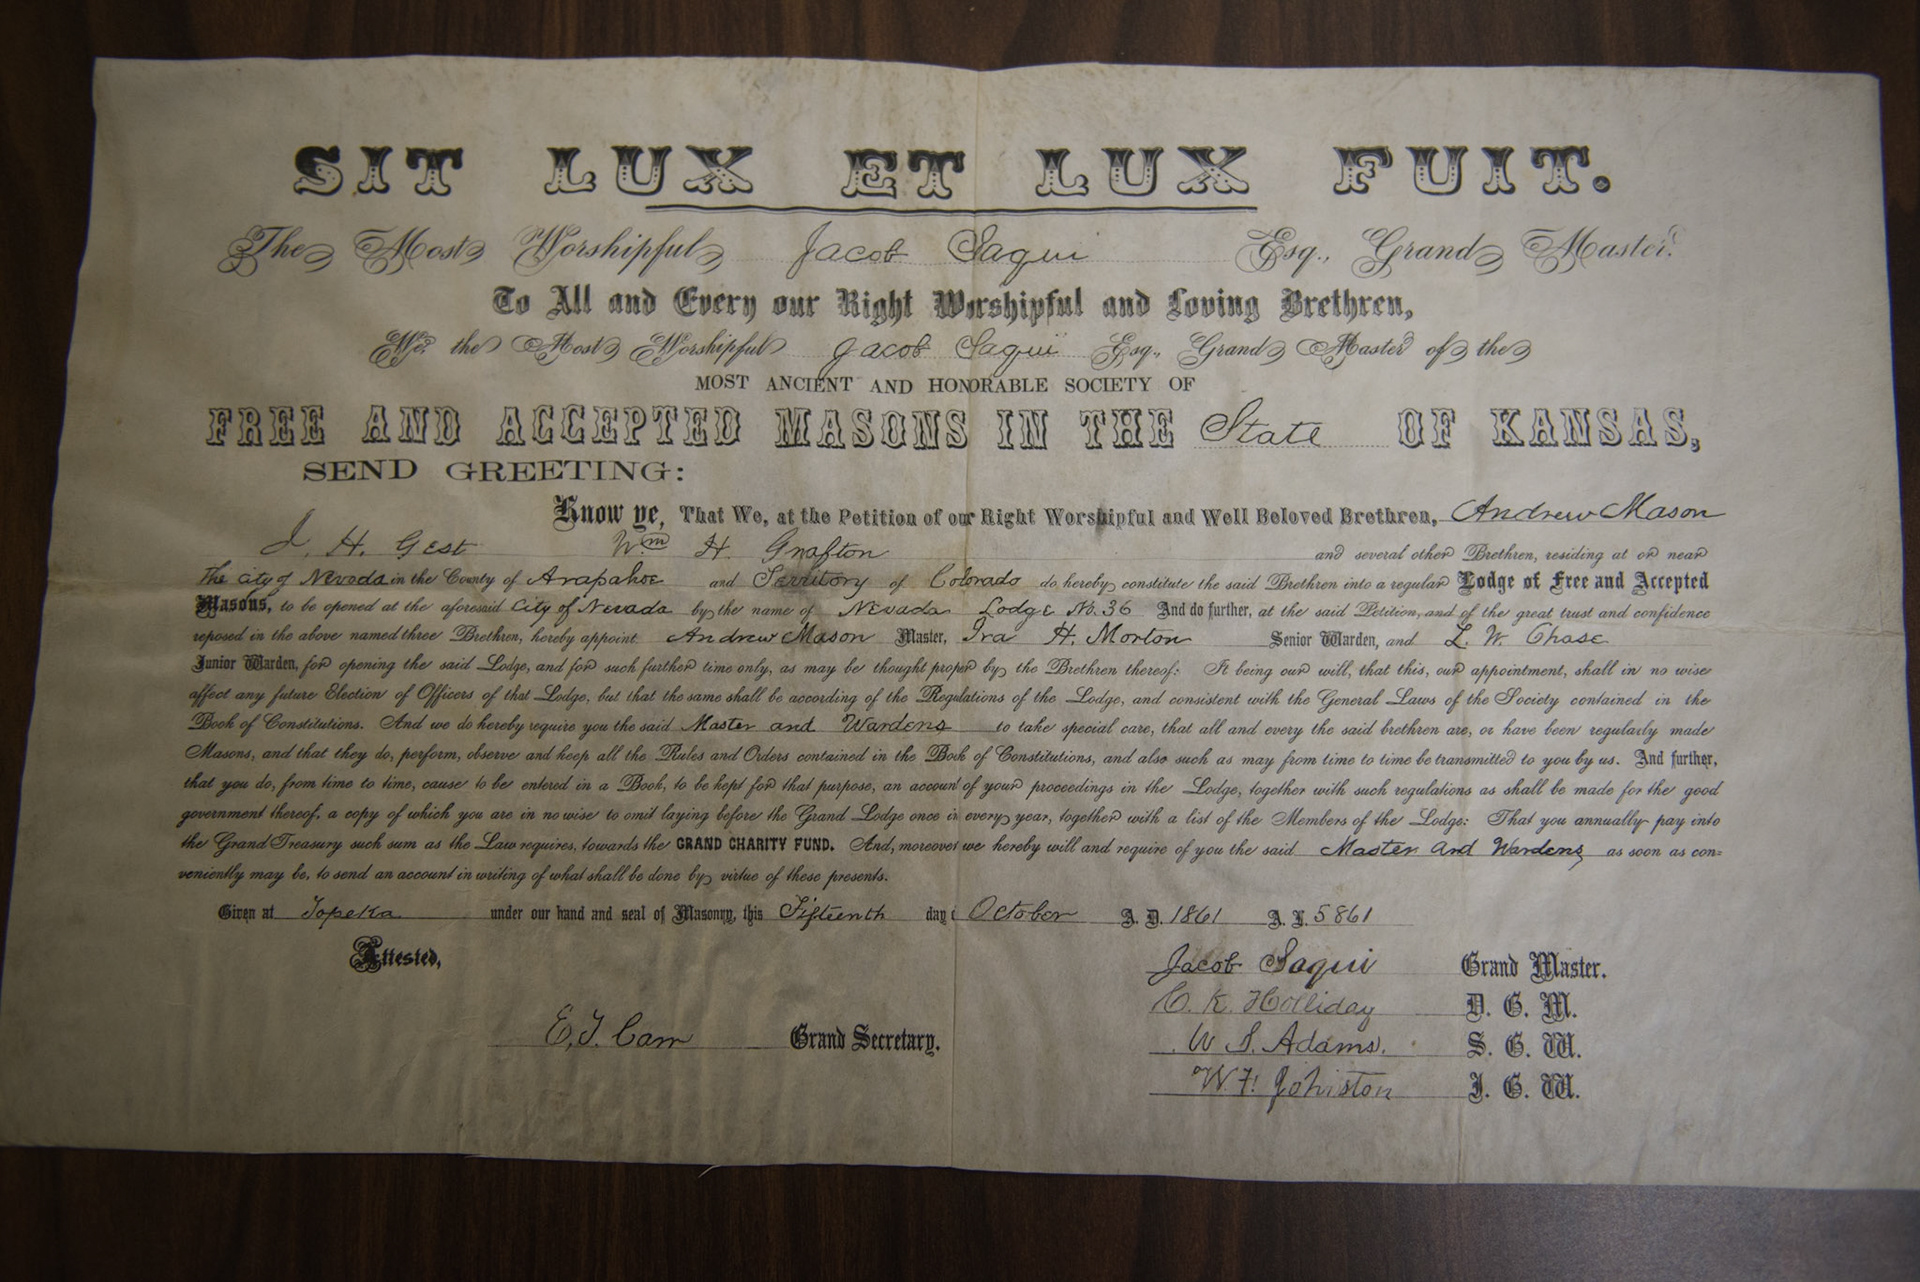 SIT LUX ET LUX FUIT.
The Most Worshipful Jacob Saqui Esq., Grand Master.
To All and Every our Right Worshipful and Loving Brethren,
We the Most Worshipful Jacob Saqui Esq., Grand Master of the
MOST ANCIENT AND HONORABLE SOCIETY OF
FREE AND ACCEPTED MASONS IN THE State OF KANSAS,
SEND GREETING:
Know ye, That We, at the Petition of our Right Worshipful and Well Beloved Brethren, Andrew Mason
J. H. Gest Wm H. Grafton and several other Brethren, residing at or near
The City of Nevada in the County of Arapahoe and Territory of Colorado do hereby constitute the said Brethren into a regular Lodge of Free and Accepted
Masons, to be opened at the aforesaid City of Nevada by the name of Nevada Lodge No. 36 And do further, at the said Petition, and of the great trust and confidence
reposed in the above named three Brethren, hereby appoint Andrew Mason Master, Ira H. Morton Senior Warden, and L. W. Chase
Junior Warden, for opening the said Lodge, and for such further time only, as may be thought proper by the Brethren thereof: It being our will, that this, our appointment, shall in no wise
affect any future Election of Officers of that Lodge, but that the same shall be according of the Regulations of the Lodge, and consistent with the General Laws of the Society contained in the
Book of Constitutions. And we do hereby require you the said Master and Wardens to take special care, that all and every the said brethren are, or have been regularly made
Masons, and that they do, perform, observe and keep all the Rules and Orders contained in the Book of Constitutions, and also such as may from time to time be transmitted to you by us. And further,
that you do, from time to time, cause to be entered in a Book, to be kept for that purpose, an account of your proceedings in the Lodge, together with such regulations as shall be made for the good
government thereof, a copy of which you are in no wise to omit laying before the Grand Lodge once in every year, together with a list of the Members of the Lodge: That you annually pay into
the Grand Treasury such sum as the Law requires, towards the GRAND CHARITY FUND. And, moreover we hereby will and require of you the said Master and Wardens as soon as con=
veniently may be, to send an account in writing of what shall be done by virtue of these presents.
Given at Topeka under our hand and seal of Masonry, this Fifteenth day October A. D. 1861 A. L. 5861
Attested,
Jacob Saqui Grand Master.
C. K. Holliday D. G. M.
E. T. Carr Grand Secretary.
W S. Adams. S. G. W.
W. F. Johnston J. G. W.